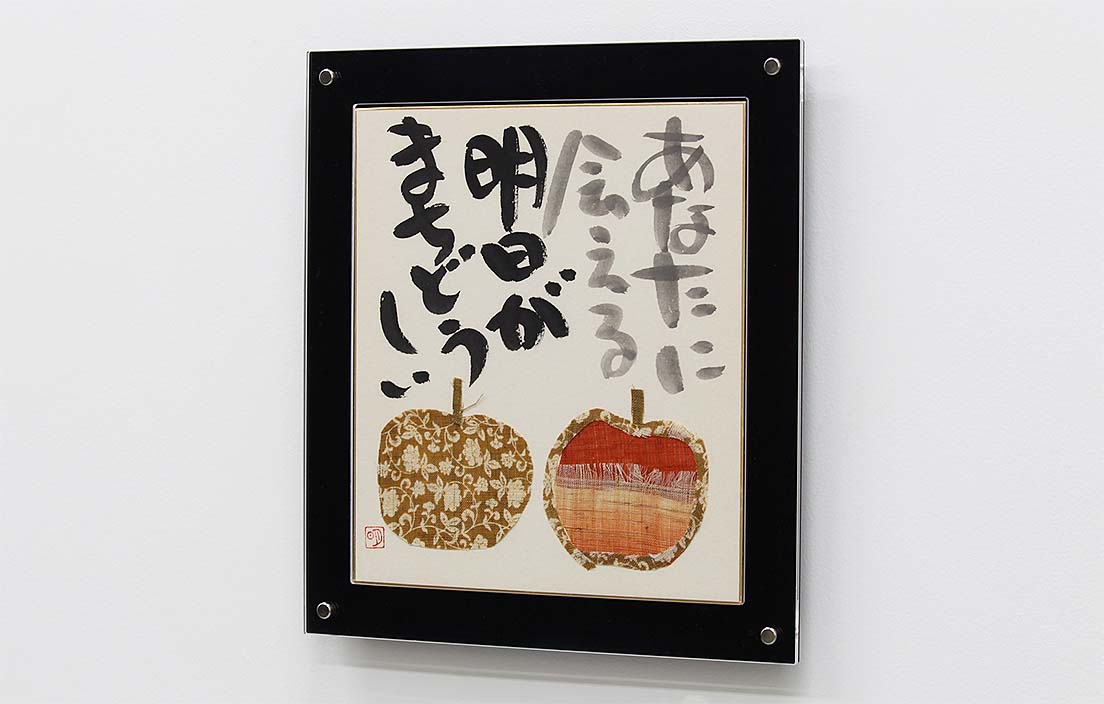 あなたに
会える
明日が
まちどうしい